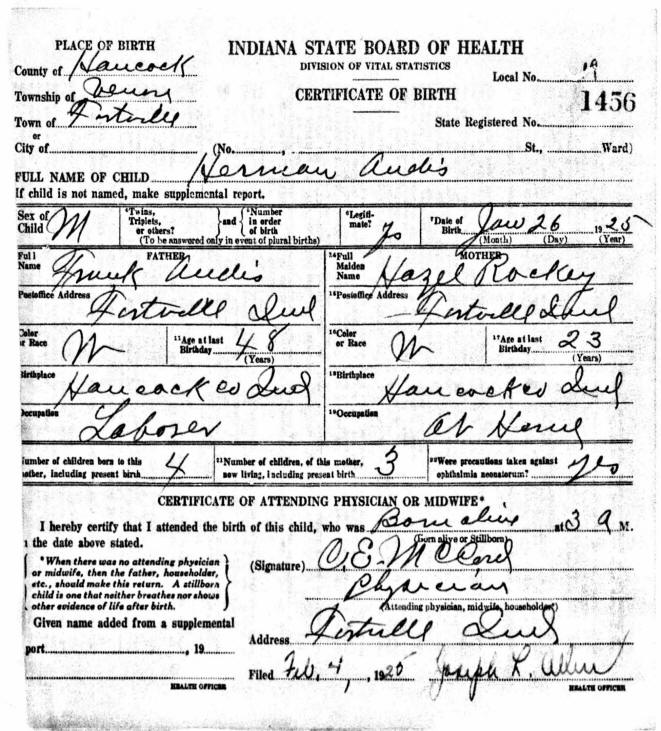 PLACE OF BIRTH
INDIANA STATE BOARD OF HEALTH
County of Hancock
DIVISION OF VITAL STATISTICS
Local No. 19
Township of Vernon
CERTIFICATE OF BIRTH
1456
Town of Fortville
State Registered No.
or
City of (No. , St., Ward)
FULL NAME OF CHILD Herman Audis
If child is not named, make supplemental report.
Sex of Child M
Twins, Triplets, or others? and Number in order of birth
(To be answered only in event of plural births)
Legiti-mate? yes
Date of Birth Jan 26 1925
(Month) (Day) (Year)
FATHER
Full Name Frank Audis
Postoffice Address Fortville Ind
Color or Race W
11 Age at last Birthday 48
(Years)
Birthplace Hancock co Ind
Occupation Laborer
MOTHER
Full Maiden Name Hazel Rockey
Postoffice Address Fortville Ind
Color or Race W
17 Age at last Birthday 23
(Years)
Birthplace Hancock co Ind
19 Occupation At Home
umber of children born to this other, including present birth 4
21 Number of children, of this mother, now living, including present birth 3
Were precautions taken against ophthalmia neonatorum? yes
CERTIFICATE OF ATTENDING PHYSICIAN OR MIDWIFE*
I hereby certify that I attended the birth of this child, who was Born alive at 3 A M.
the date above stated.
(Born alive or Stillborn)
*When there was no attending physician
or midwife, then the father, householder,
etc., should make this return. A stillborn
child is one that neither breathes nor shows
other evidence of life after birth.
(Signature) C. E. McCord
Physician
(Attending physician, midwife, householder*)
Given name added from a supplemental
port , 19
Address Fortville Ind
Filed Feb, 4, 1925 Joseph L. Allen
HEALTH OFFICER
HEALTH OFFICER